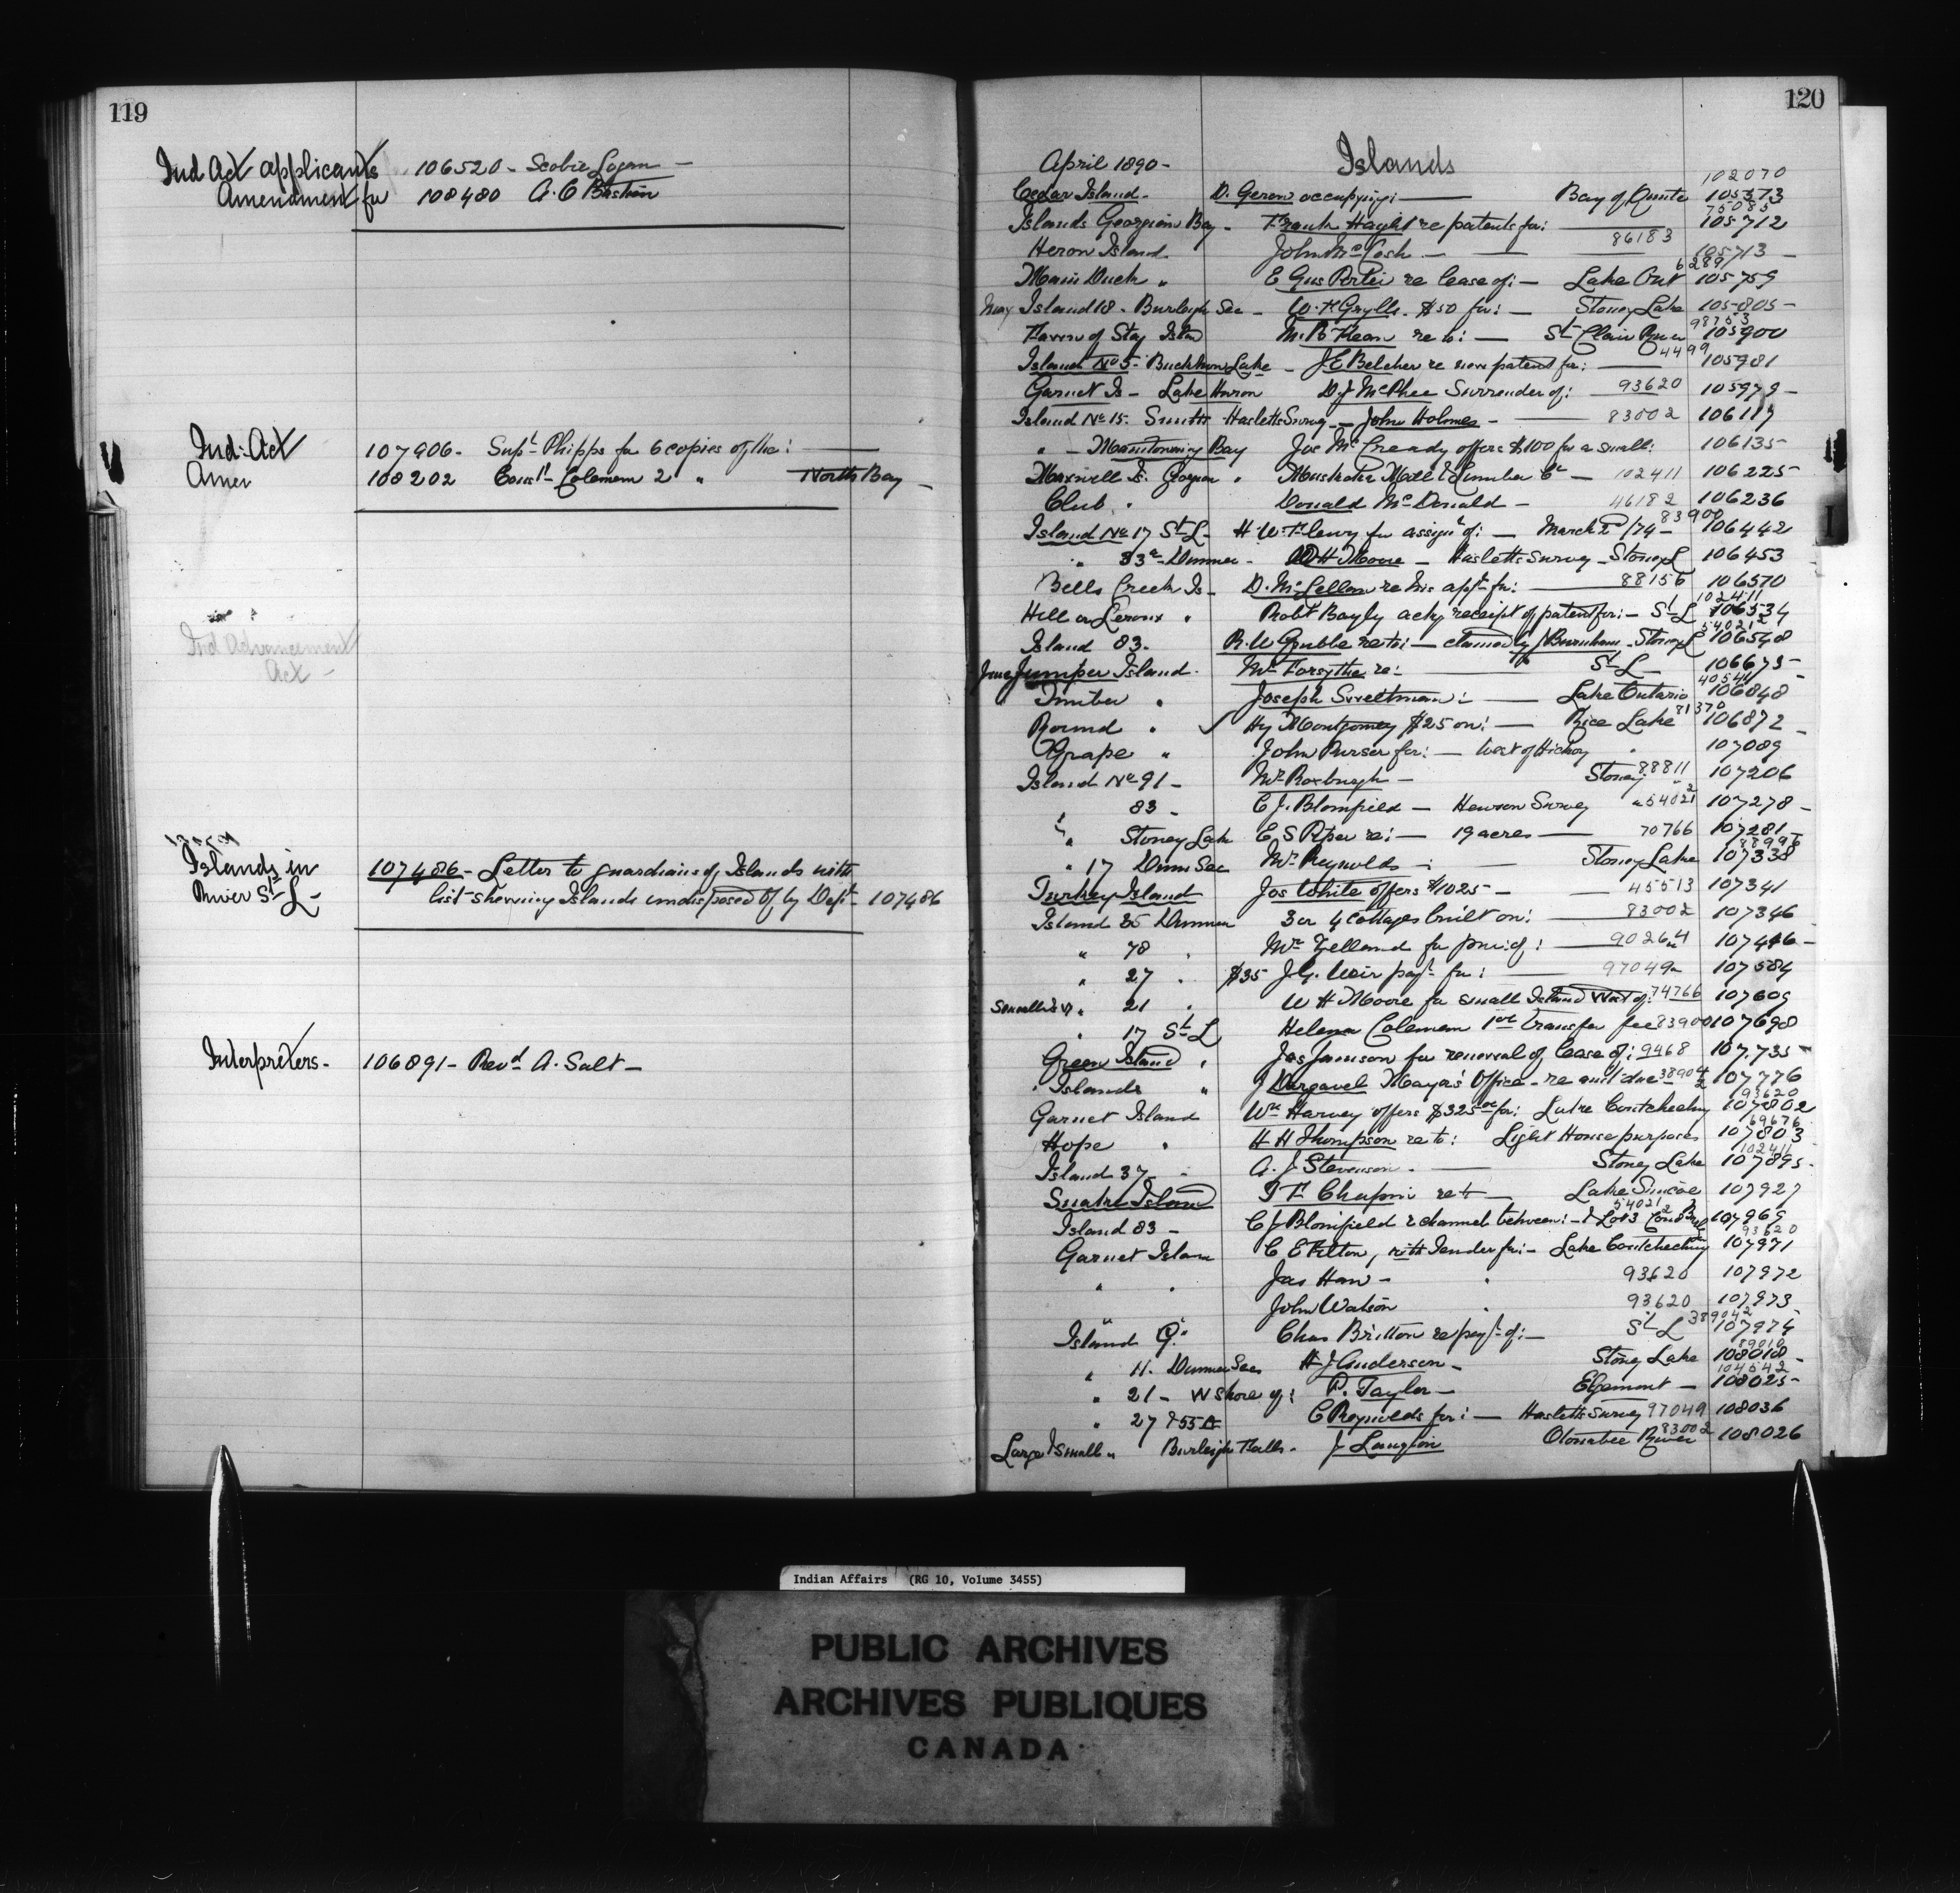 119
Ind Act applicants 106520 - Scobie Logan -
Amendment for 108480 A. C Bastien
Ind: Act 107906 - Supt Phipps for 6 copies of the:
Amer 108202 Const Coleman 2 " North Bay -
Ind Advancement
Act -
Islands in 107486 - Letter to guardians of Islands with
River St L - list shewing Islands undisposed of by Dept - 107486
Interpreters - 106891 - Revd A. Salt -
120
April 1890 - Islands
102070
Cedar Island - D. Gerow occupying: Bay of Quinte 105373
75085
Islands Georgian Bay - Frank Haight re patents for: 105712
Heron Island John McCosh - 86183 105713 -
6289
Main Duck " E Gus Porter re lease of: - Lake Ont 105759
May Island 18 - Burleigh Sec - W. H Grylls - $50 for: - Stoney Lake 105805 -
98753
Haven of Stay Islan M. B Kean re to: - St Clair River 105900
4499
Island No 5 - Buckhorn Lake - J. E Belcher re new patent for: 105981
Garnet Is - Lake Huron D. J McPhee Surrender of: 93620 105979 -
Island No 15 - Smith Hasletts Survey - John Holmes - 83002 106117
" - Manitowaning Bay Jos McCready offers $100 for a small: 106135
Maxwell Is. Georgian " Muskoka Mill & Lumber Co - 102411 106225
Club " Donald McDonald - 46182 106236
83900
Island No 17 St L - H. W. Fleury for assignt of: - March 2/74 - 106442
" 83a - Dummer - W H Moore - Hasletts Survey - Stoney L 106453
Bells Creek Is - D. McLellan re his appn for: 88156 106570
102411
Hill or Leroux " Robt Bayly ackg receipt of patent for: - St L 106534
54021
Island 83 - R. W Grubbe re to: - claimed by J Burnham - Stoney L 106548
June Jumper Island - Mr Forsythe re: St L 106675 -
40541
Timber " Joseph Sweetman: Lake Ontario 106848
71370
Round " Hy Montgomey $25 on: - Rice Lake 106872 -
Grape " John Purser for: - West of Hickory " 107089
Island No 91 - Mr Roxburgh - Stoney 88811 107206
" 83 - C. J. Blomfield - Hewson Survey " 54021 107278 -
" Stoney Lake E, S Piper re: - 19 acres - 70766 107281
88996
" 17 Dum Sec Mr Reynolds - : Stoney Lake 107338
Turkey Island Jos White offers $1025 - 45513 107341
Island 35 Dummer 3 or 4 cottages built on: 83002 107346
" 78 " Mr Yelland for pur: of: 90264 107446 -
" 27 " $35 J. G. Weir payt for: 97049 107584
" 21 " W H Moore for small Island West of: 74766 107609
" 17 St L Helena Coleman 1st transfer fee 83900 107698
Green Island " Jas Jamison for renewal of lease of: 9468 107735
" Islands " J Dargavel Mayor's Office - re amt due 38904 107776
93620
Garnet Island Wm Harvey offers $325.00 for: Lake Coutcheching 107802
69676
Hope " H H Thompson re to: Light House purposes 107803
102411
Island 37 " A. J Stevenson - Stoney Lake 107895 -
Snake Island J F Chapin re to - Lake Simcoe 107927
54021
Island 83 - C J Blomfield re channel between: - & Lot 3 Con 107969
93620
Garnet Islan C E Hilton, with Tender for: - Lake Coutcheching 107971
" " Jas Haw - " 93620 107972
John Watson " 93620 107973
389042
Island Q. Chas Britton re payt of: - St L 107974
89010
" 11. Dummer Sec H J Anderson - Stoney Lake 108018 -
104542
" 21 - W shore of: P. Taylor - Egremont - 108025 -
" 27 & 55 A C Reynolds for: - Hasletts Survey 97049 108036
83002
Large & small " Burleigh Falls - J Langton Otonabee River 108026
I
Indian Affairs (RG 10, Volume 3455)
PUBLIC ARCHIVES
ARCHIVES PUBLIQUES
CANADA